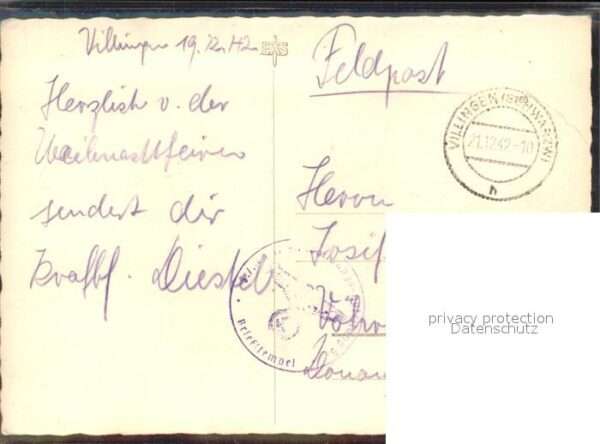 Villingen 19.12.42
Feldpost
Herzlich v. der
Weihnachtsfeier
sendet dir
Kraftf. Diesel
VILLINGEN (SCHWARZW)
21.12.42-10
h
Herrn
Josif
Donau
Briefstempel
privacy protection
Datenschutz